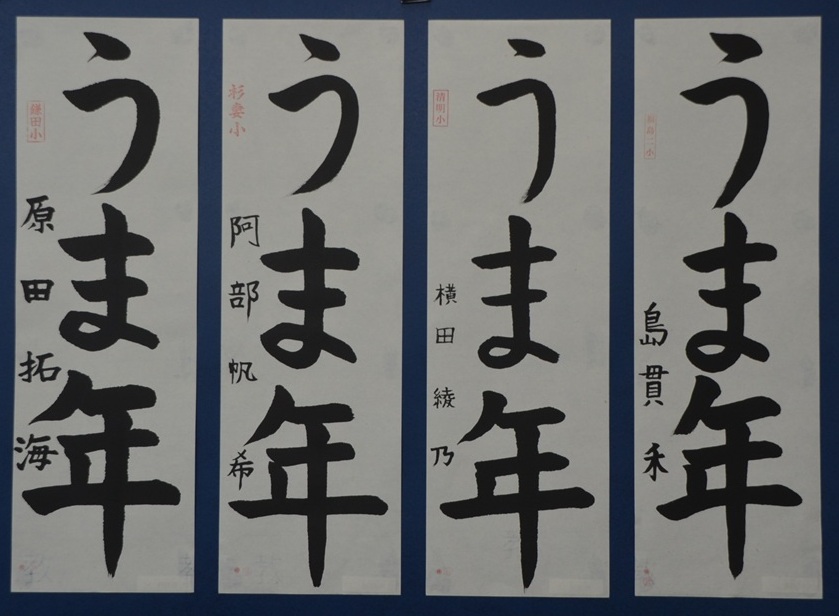 うま年
島貫禾
うま年
清明小
横田綾乃
うま年
杉妻小
阿部帆希
うま年
鎌田小
原田拓海